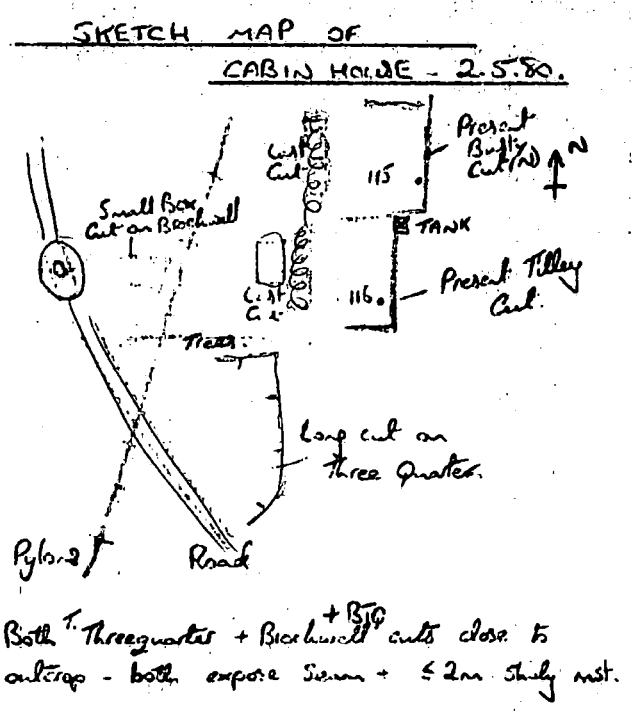 SKETCH MAP OF
CABIN HOUSE - 2.5.80.
Present
Busty
Cut (N)
N
Last
Cut
115
Small Box
Cut on Brockwell
TANK
Present Tilley
Cut.
116
Last
Cut
Trees.
Long cut on
Three Quarter.
Pylons
Road
+ BTQ
Both T. Threequarter + Brockwell cuts close to
outcrop - both expose Seam + ≤ 2m Shaly mst.